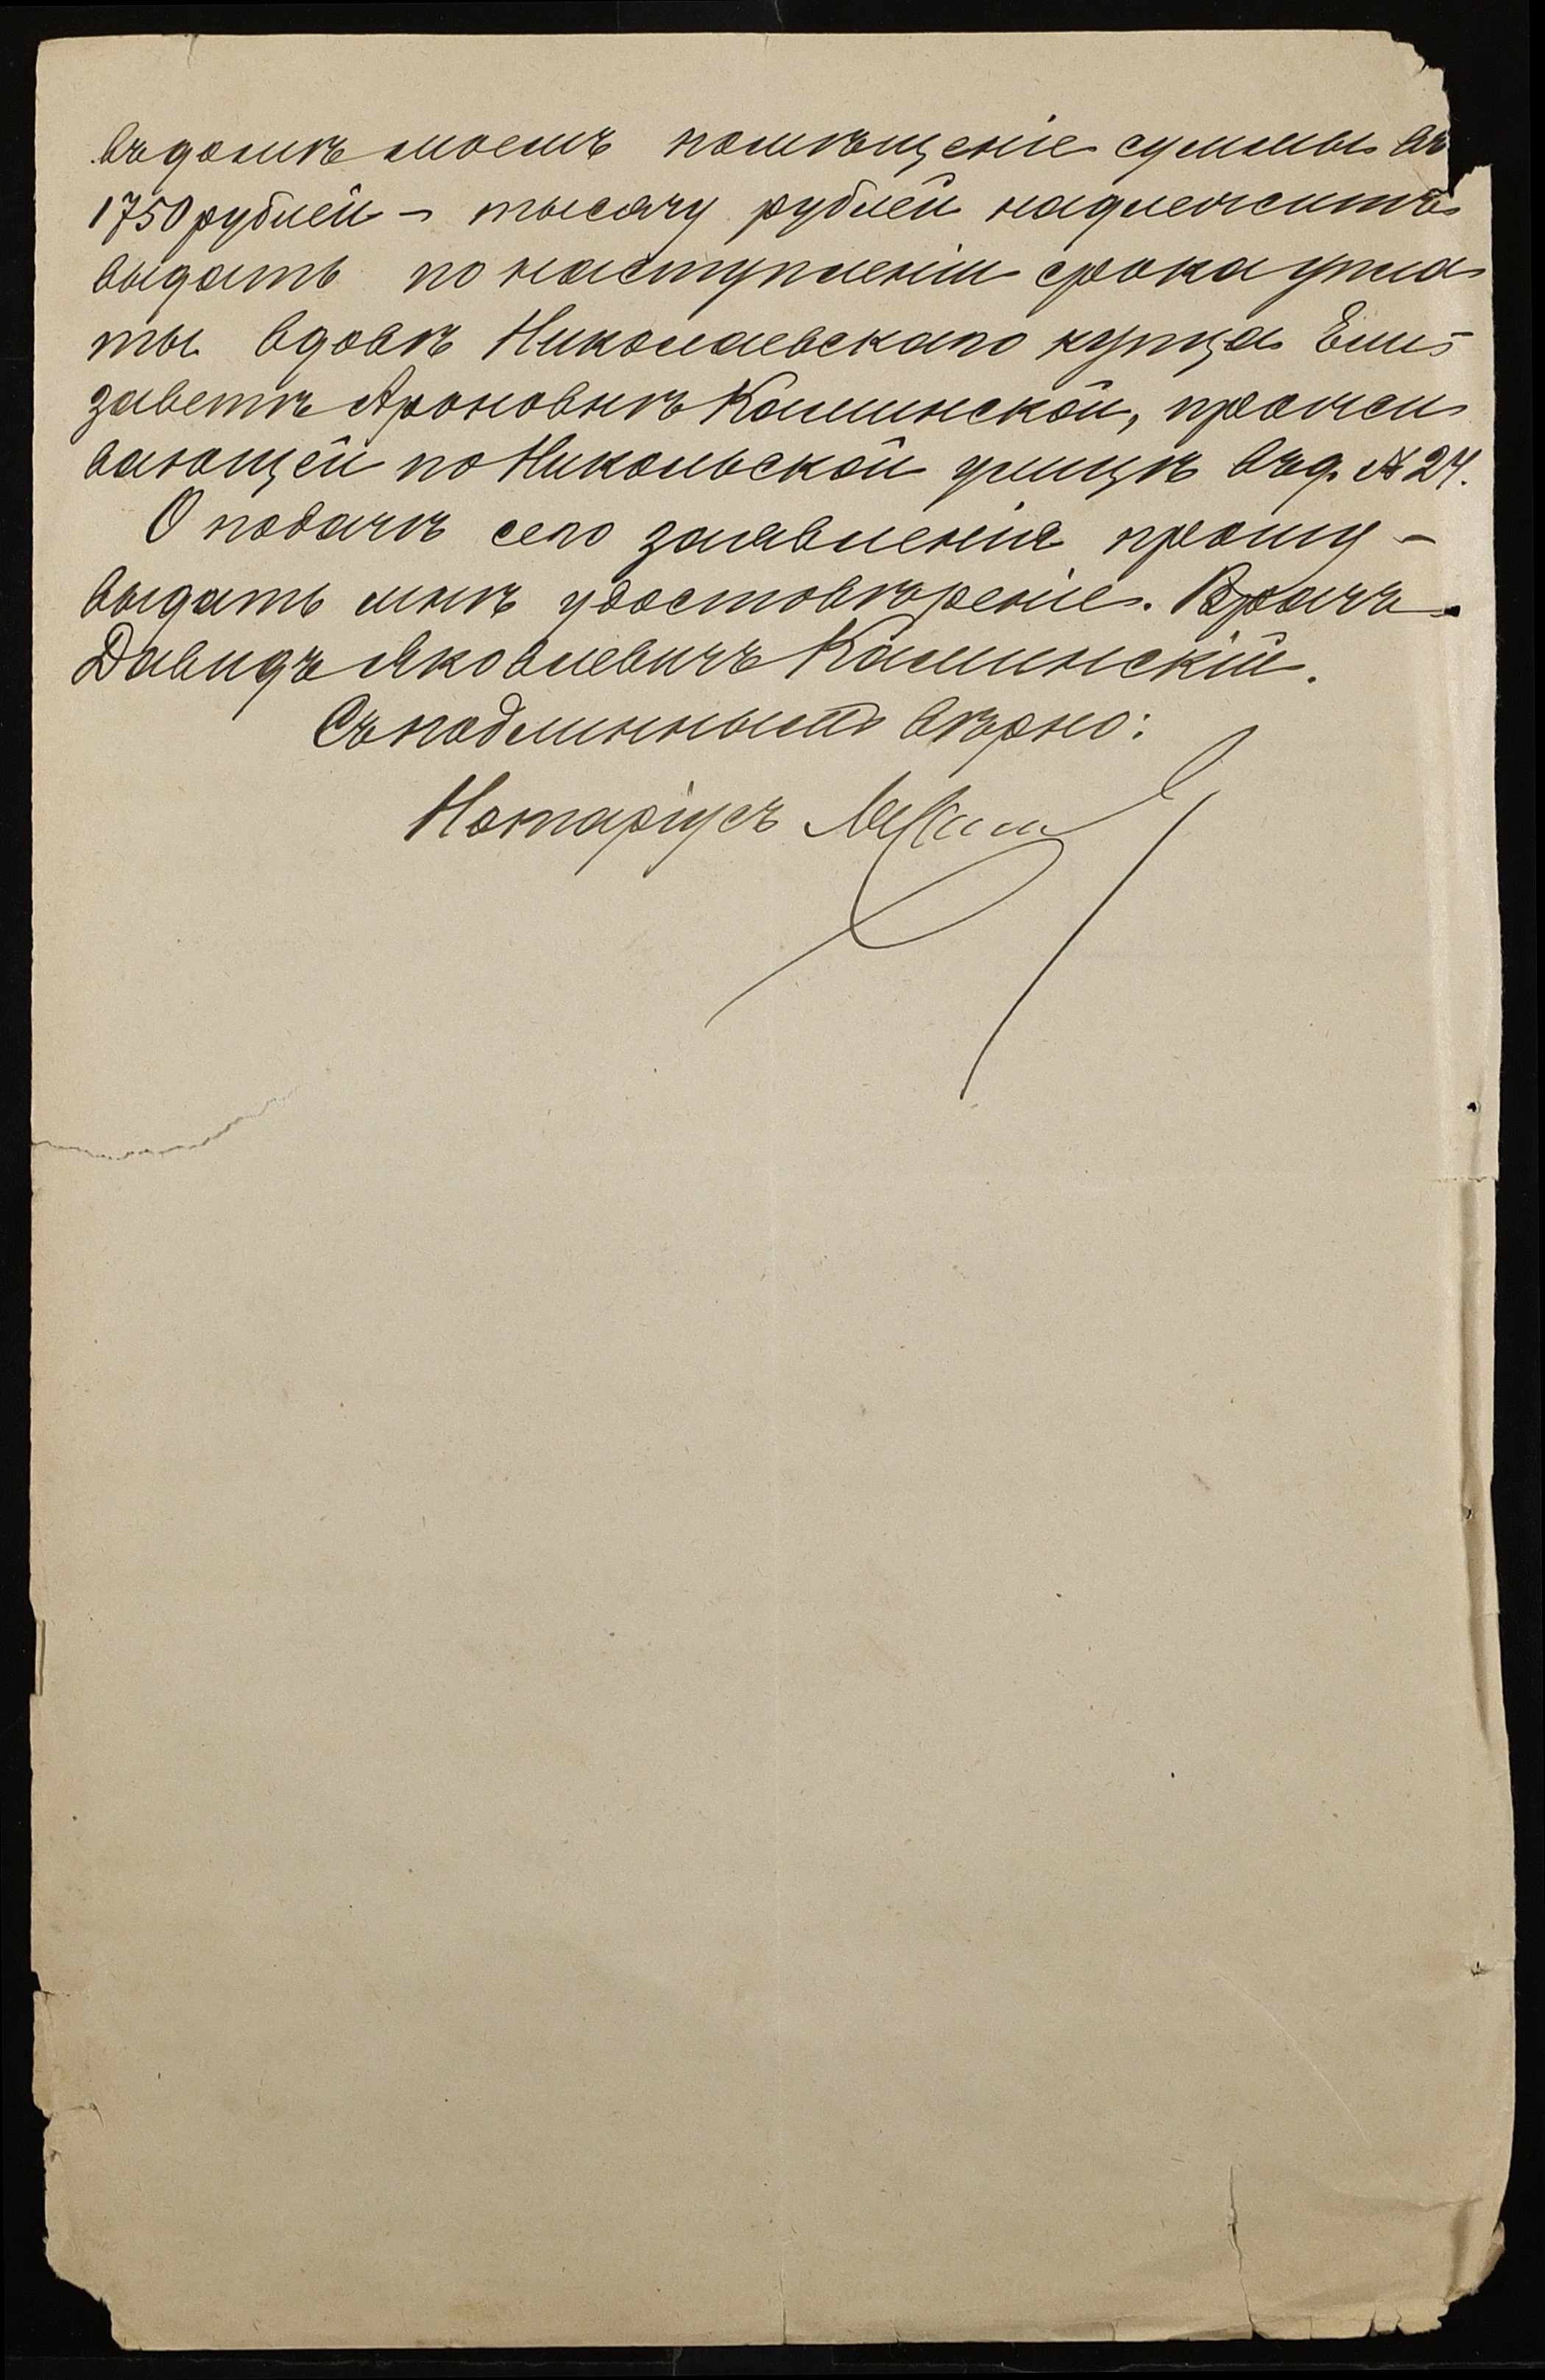 въ домѣ моемъ помѣщеніе суммы въ
1750 рублей – тысячу рублей надлежитъ
выдать по наступленіи срока упла
ты вдовѣ Николаевскаго купца Ели-
заветѣ Ароновнѣ Каминской, прожи
вающей по Никольской улицѣ въ д. № 24.
О подачѣ сего заявленія прошу –
выдать мнѣ удостовѣреніе. Врачъ
Давидъ Яковлевичъ Каминскій.
Съ подлиннымъ вѣрно:
Нотаріусъ